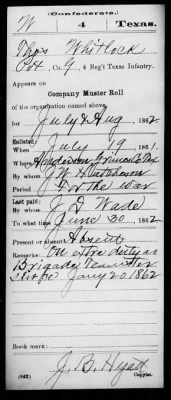 (Confederate.)
W 4 Texas.
Thos Whitlock
Pvt, Co. G, 4 Reg't Texas Infantry.
Appears on
Company Muster Roll
of the organization named above,
for July & Aug, 1862.
Enlisted:
When July 19, 1861.
Where Anderson Grimes Co Tex
By whom J. W. Hutcheson
Period For the war
Last paid:
By whom J. D. Wade
To what time June 30, 1862.
Present or absent Absent
Remarks: On extra duty as
Brigade Teamster
since Jany 20 1862
Book mark:
J. B. Hyatt
(642) Copyist.